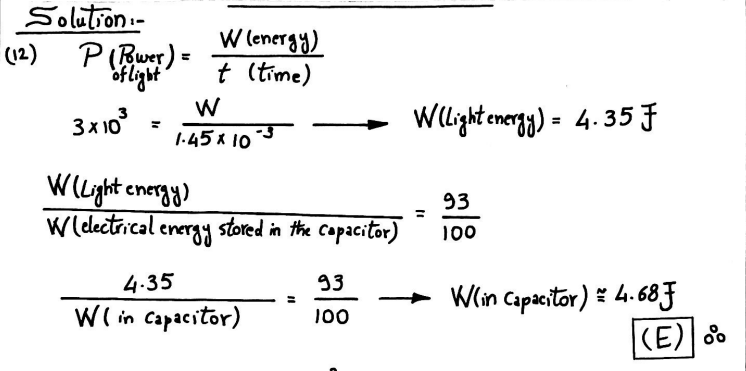 Solution:-
(12) P (Power of light) = W (energy) / t (time)
3 x 10³ = W / 1.45 x 10⁻³ → W (Light energy) = 4.35 J
W (Light energy) / W (electrical energy stored in the capacitor) = 93 / 100
4.35 / W ( in capacitor) = 93 / 100 → W (in capacitor) ≅ 4.68 J
(E)